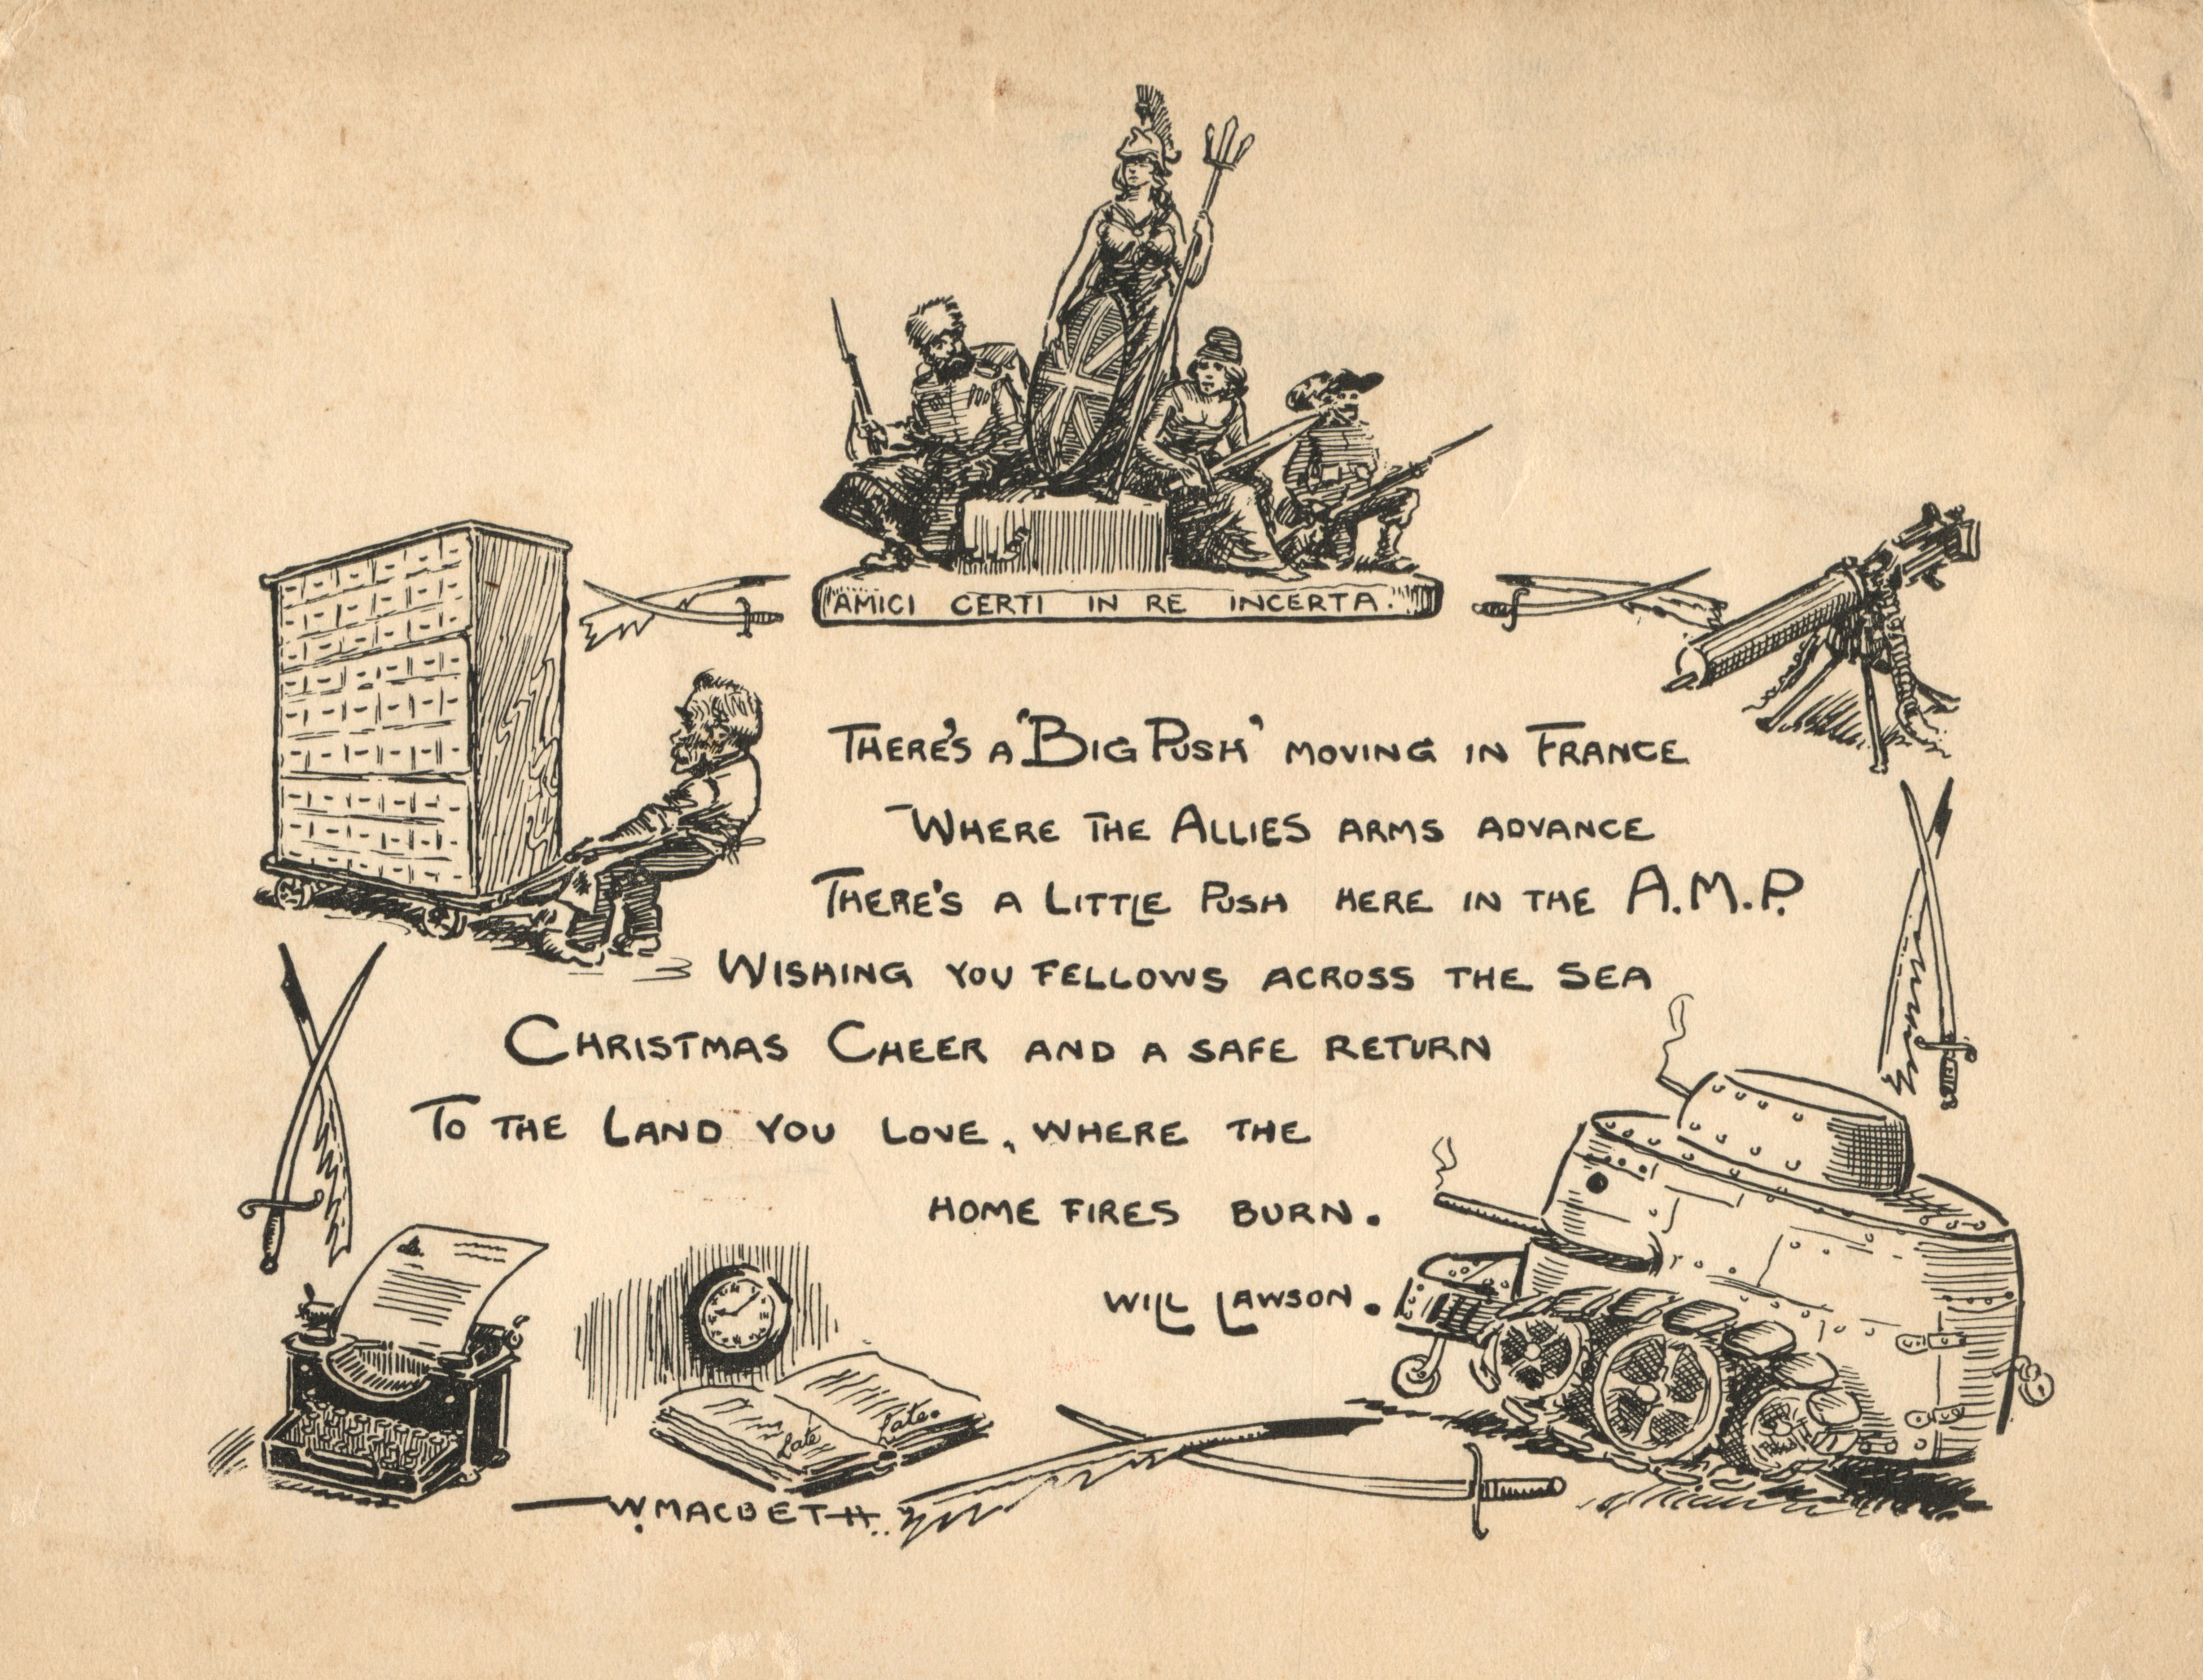 AMICI CERTI IN RE INCERTA.
THERE'S A 'BIG PUSH' MOVING IN FRANCE
WHERE THE ALLIES ARMS ADVANCE
THERE'S A LITTLE PUSH HERE IN THE A.M.P.
WISHING YOU FELLOWS ACROSS THE SEA
CHRISTMAS CHEER AND A SAFE RETURN
TO THE LAND YOU LOVE, WHERE THE
HOME FIRES BURN.
WILL LAWSON.
Late
Late.
W. MACBETH..